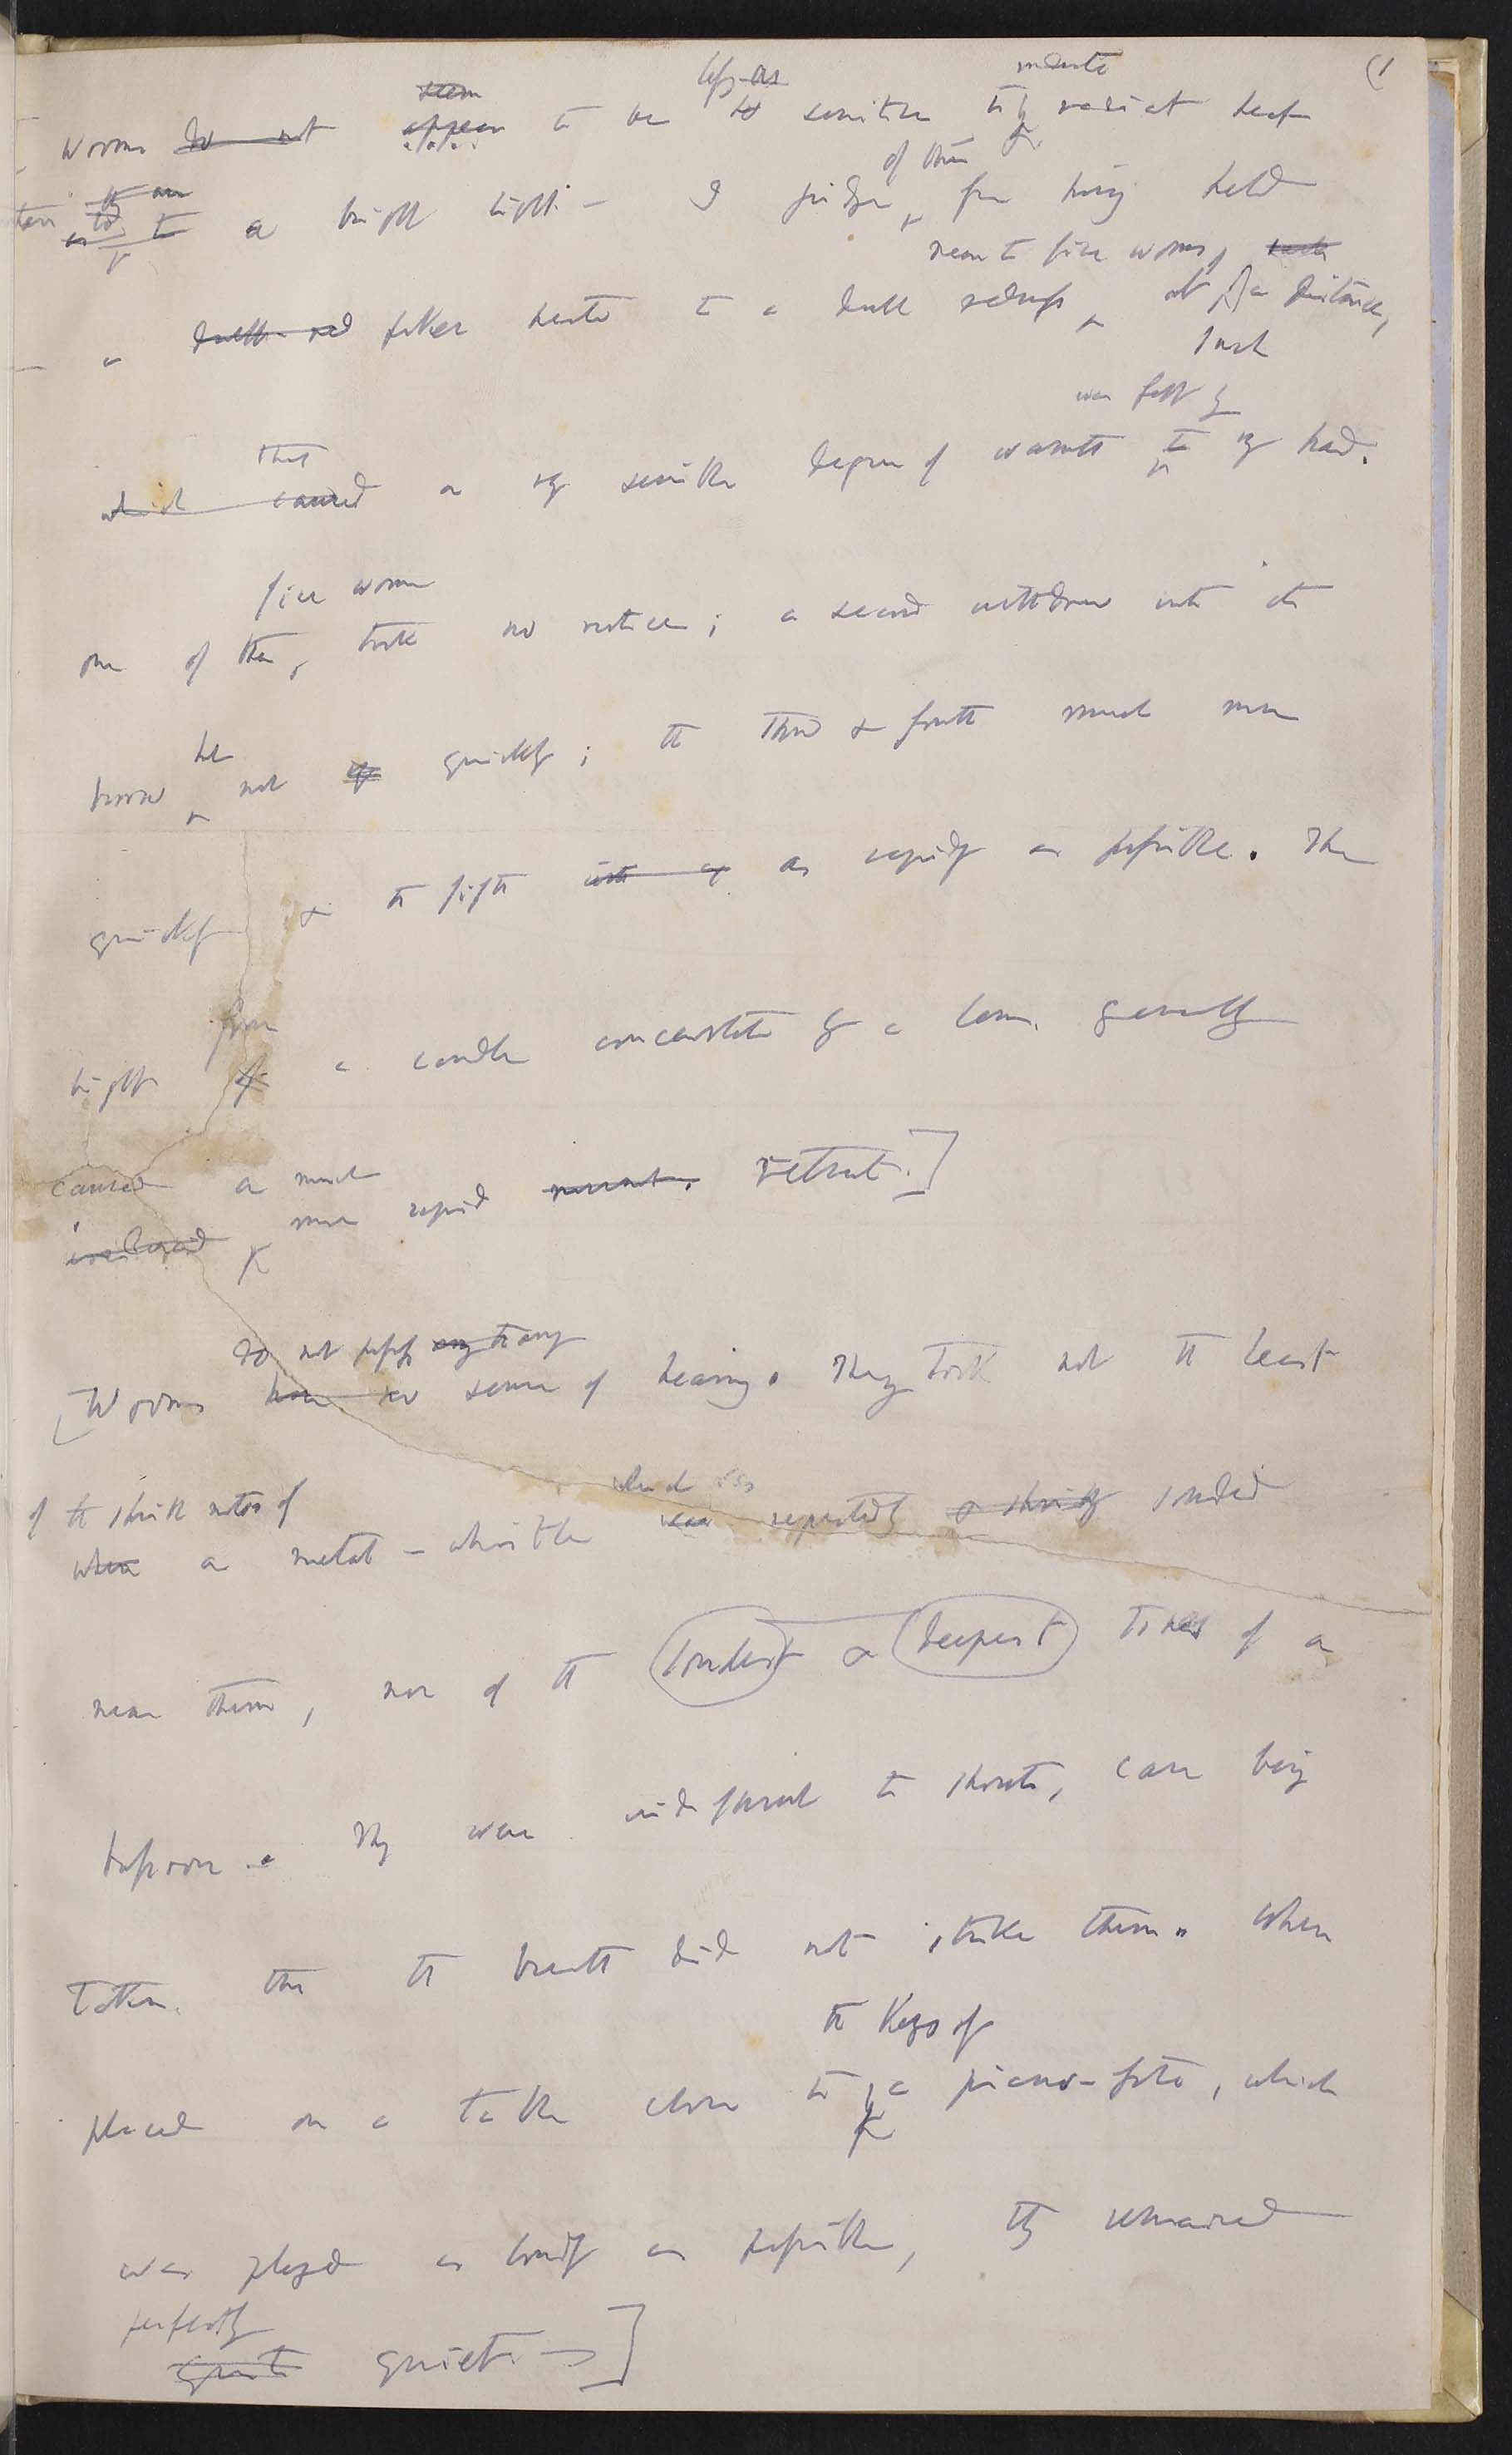 (1
seem less as moderate
Worms do not appear to be so sensitive to radiant heat
of this
than to a bright light — I judge from having held
near to five worms, each
a dull-red poker heated to a dull redness at a distance,
such
was felt by
that
which caused a very sensible degree of warmth to my hand.
five worms
one of them, took no notice; a second withdrew into its
but
burrow not quickly; the third & fourth much more
quickly & the fifth as rapidly as possible. The
from
light of a candle concentrated by a lens generally
caused a much
more rapid retreat.]
do not possess any
[Worms have no sense of hearing. They took not the least
of the shrill notes of which was
when a metal-whistle was repeatedly & shrilly sounded
near them, nor of the loudest & deepest tones of a
bassoon. They were indifferent to shouts, care being
taken that the breath did not strike them. When
the keys of
placed on a table close to a piano-forte, which
was played as loudly as possible, they remained
perfectly
quite quiet.]